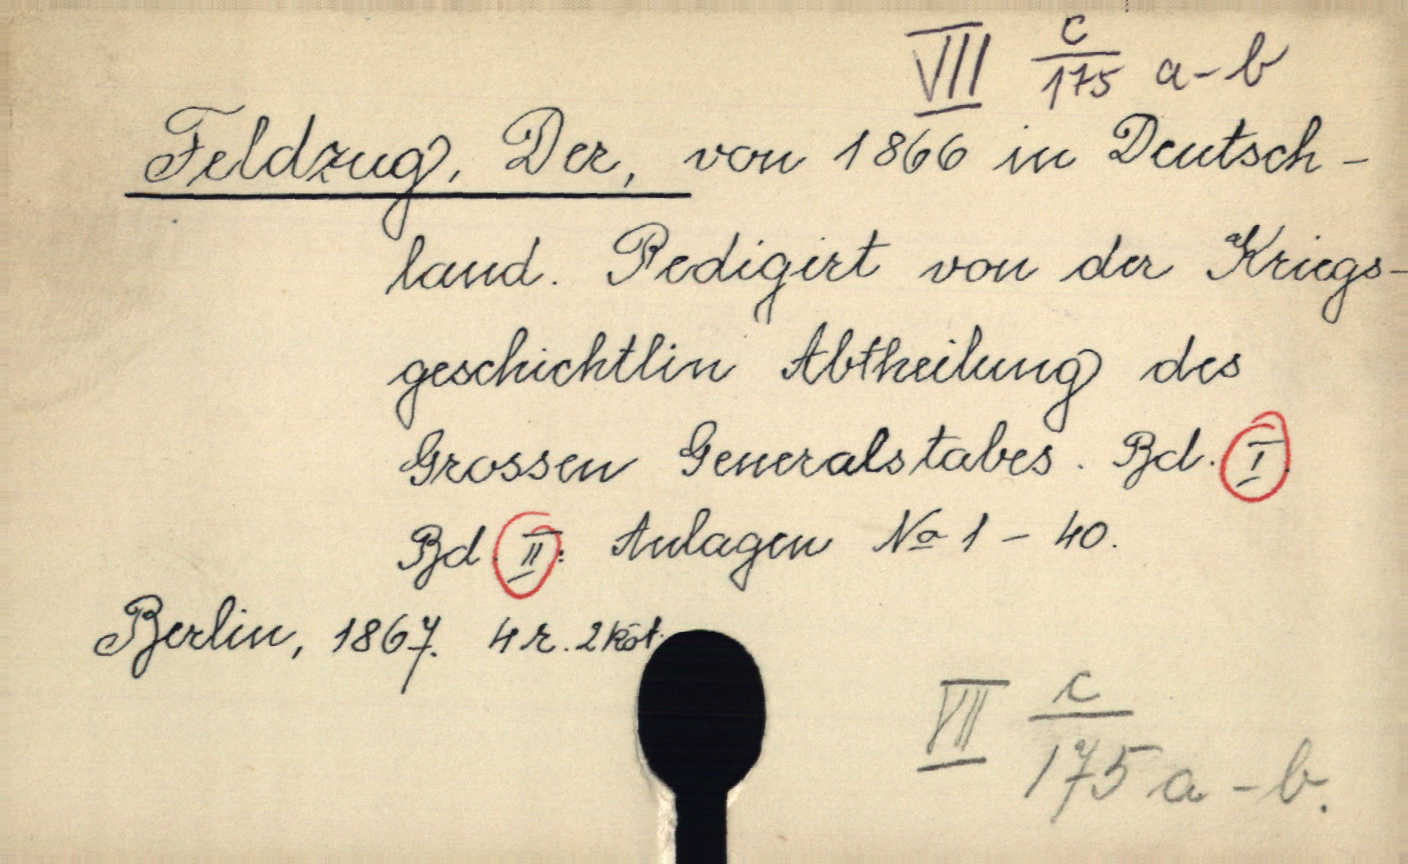 VII c/175 a-b
Feldzug, Der, von 1866 in Deutsch-
land. Redigirt von der Kriegs-
geschichtlin Abtheilung des
Grossen Generalstabes. Bd. I.
Bd. II: Anlagen No 1 - 40.
Berlin, 1867. 4 r. 2 köt.
VII c/175 a-b.